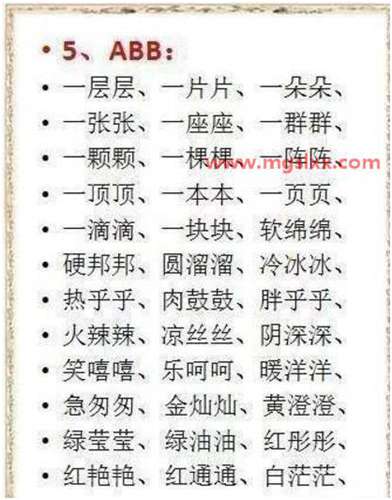 • 5、ABB：
• 一层层、一片片、一朵朵、
• 一张张、一座座、一群群、
• 一颗颗、一棵棵、一阵阵、
www.mgslxx.com
• 一顶顶、一本本、一页页、
• 一滴滴、一块块、软绵绵、
• 硬邦邦、圆溜溜、冷冰冰、
• 热乎乎、肉鼓鼓、胖乎乎、
• 火辣辣、凉丝丝、阴深深、
• 笑嘻嘻、乐呵呵、暖洋洋、
• 急匆匆、金灿灿、黄澄澄、
• 绿莹莹、绿油油、红彤彤、
• 红艳艳、红通通、白茫茫、